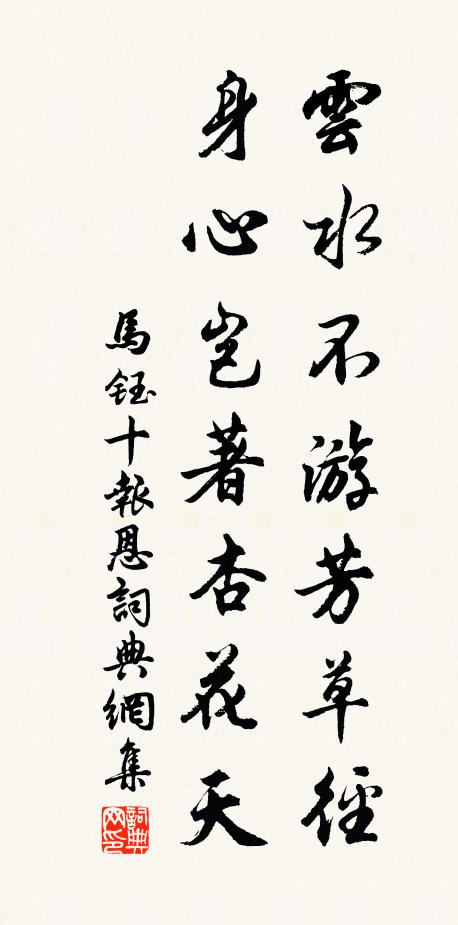 雲水不游芳草徑
身心豈著杏花天
馬鈺十報恩詞典網集
詞典网印